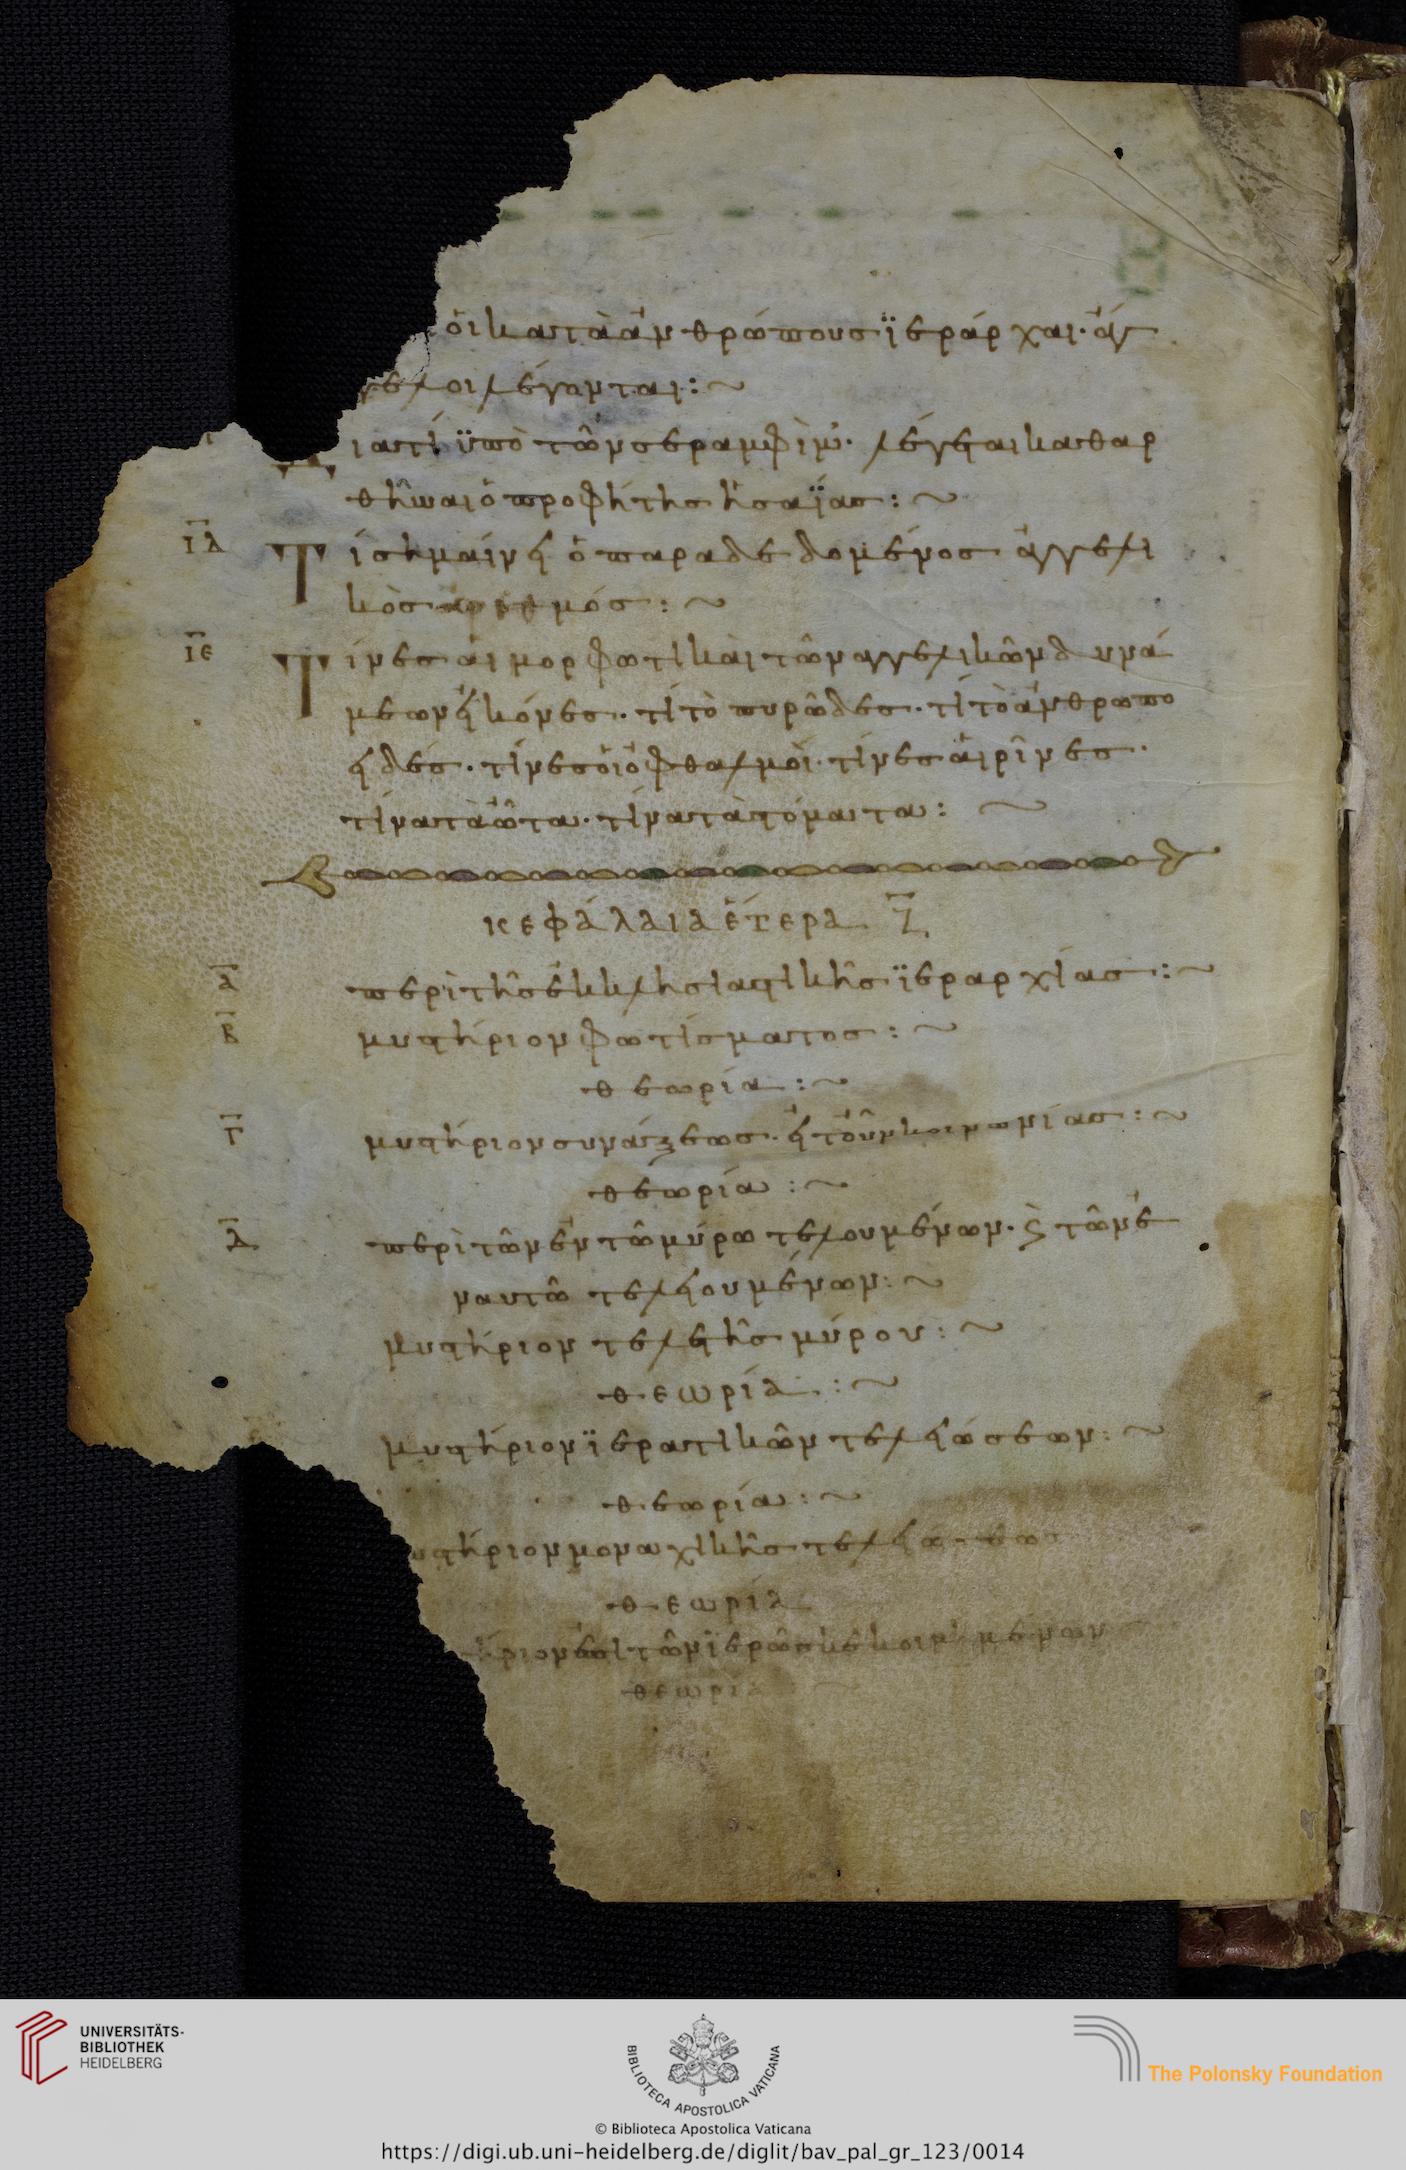 οἱ κατὰ ἀνθρώπους ἱεράρχαι· ἄγ
γελοι λέγονται:~
ιατί ὑπὸ τῶν σεραφὶμ· λέγεται καθαρ
θῆναι ὁ προφήτης ἠσαΐας:~
ΙΔ Τί σημαίνει ὁ παραδεδομένος ἀγγελι
κὸς ἀριθμός:~
ΙΕ Τίνες αἱ μορφωτικαὶ τῶν ἀγγελικῶν δυνά
μεων εἰκόνες· τί τὸ πυρῶδες· τί τὸ ἀνθρωπο
ειδές· τίνες οἱ ὀφθαλμοὶ· τίνες αἱ ρῖνες·
τίνα τὰ ὦτα· τίνα τὰ στόματα:~
κεφάλαια ἕτερα Ζ
Α περὶ τῆς ἐκκλησιαστικῆς ἱεραρχίας:~
Β μυστήριον φωτίσματος:~
θεωρία:~
Γ μυστήριον συνάξεως· εἴτουν κοινωνίας:~
θεωρία:~
Δ περὶ τῶν ἐν τῶ μύρω τελουμένων· ϗ τῶν ἐ
ν αυτῶ τελειουμένων:~
μυστήριον τελετῆς μύρου:~
θεωρία:~
μυστήριον ἱερατικῶν τελειώσεων:~
θεωρία:~
υστήριον μοναχικῆς τελειώσεως
θεωρία
ήριον ἐπὶ τῶν ἱερῶς κεκοιμημένων
θεωρία
UNIVERSITÄTS-
BIBLIOTHEK
HEIDELBERG
BIBLIOTECA APOSTOLICA VATICANA
The Polonsky Foundation
© Biblioteca Apostolica Vaticana
https://digi.ub.uni-heidelberg.de/diglit/bav_pal_gr_123/0014